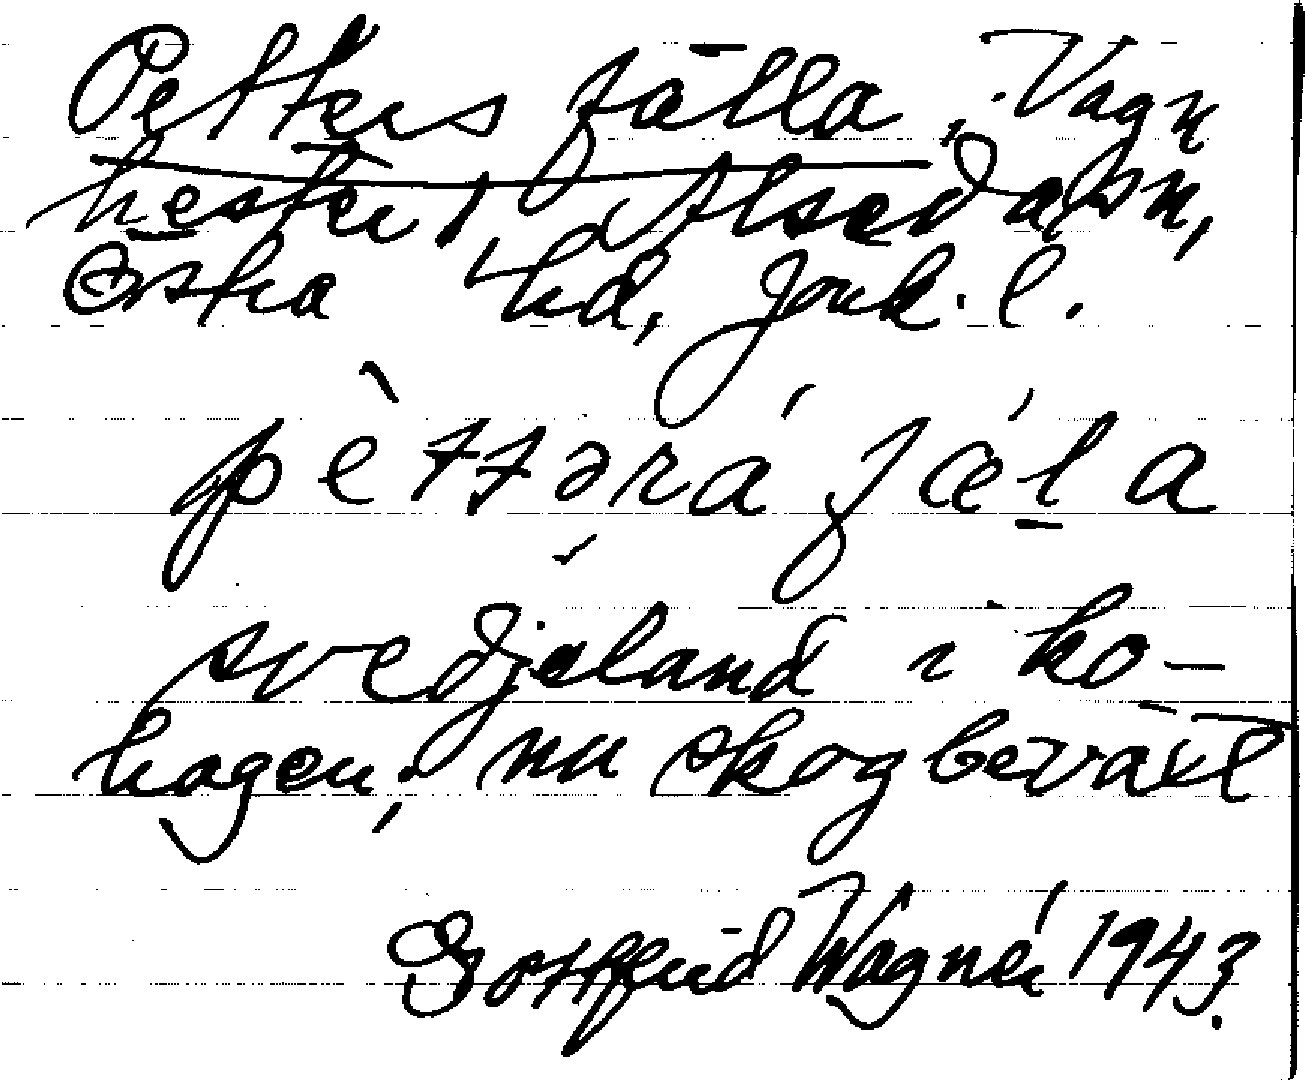 Petters fälla, Vagn
hester 1, Alseda sn,
Östra hd, Jönk. l.
pèttərá fǽla
svedjeland i ko-
hagen, nu skogbeväxt
Gottfrid Wagnér 1943.